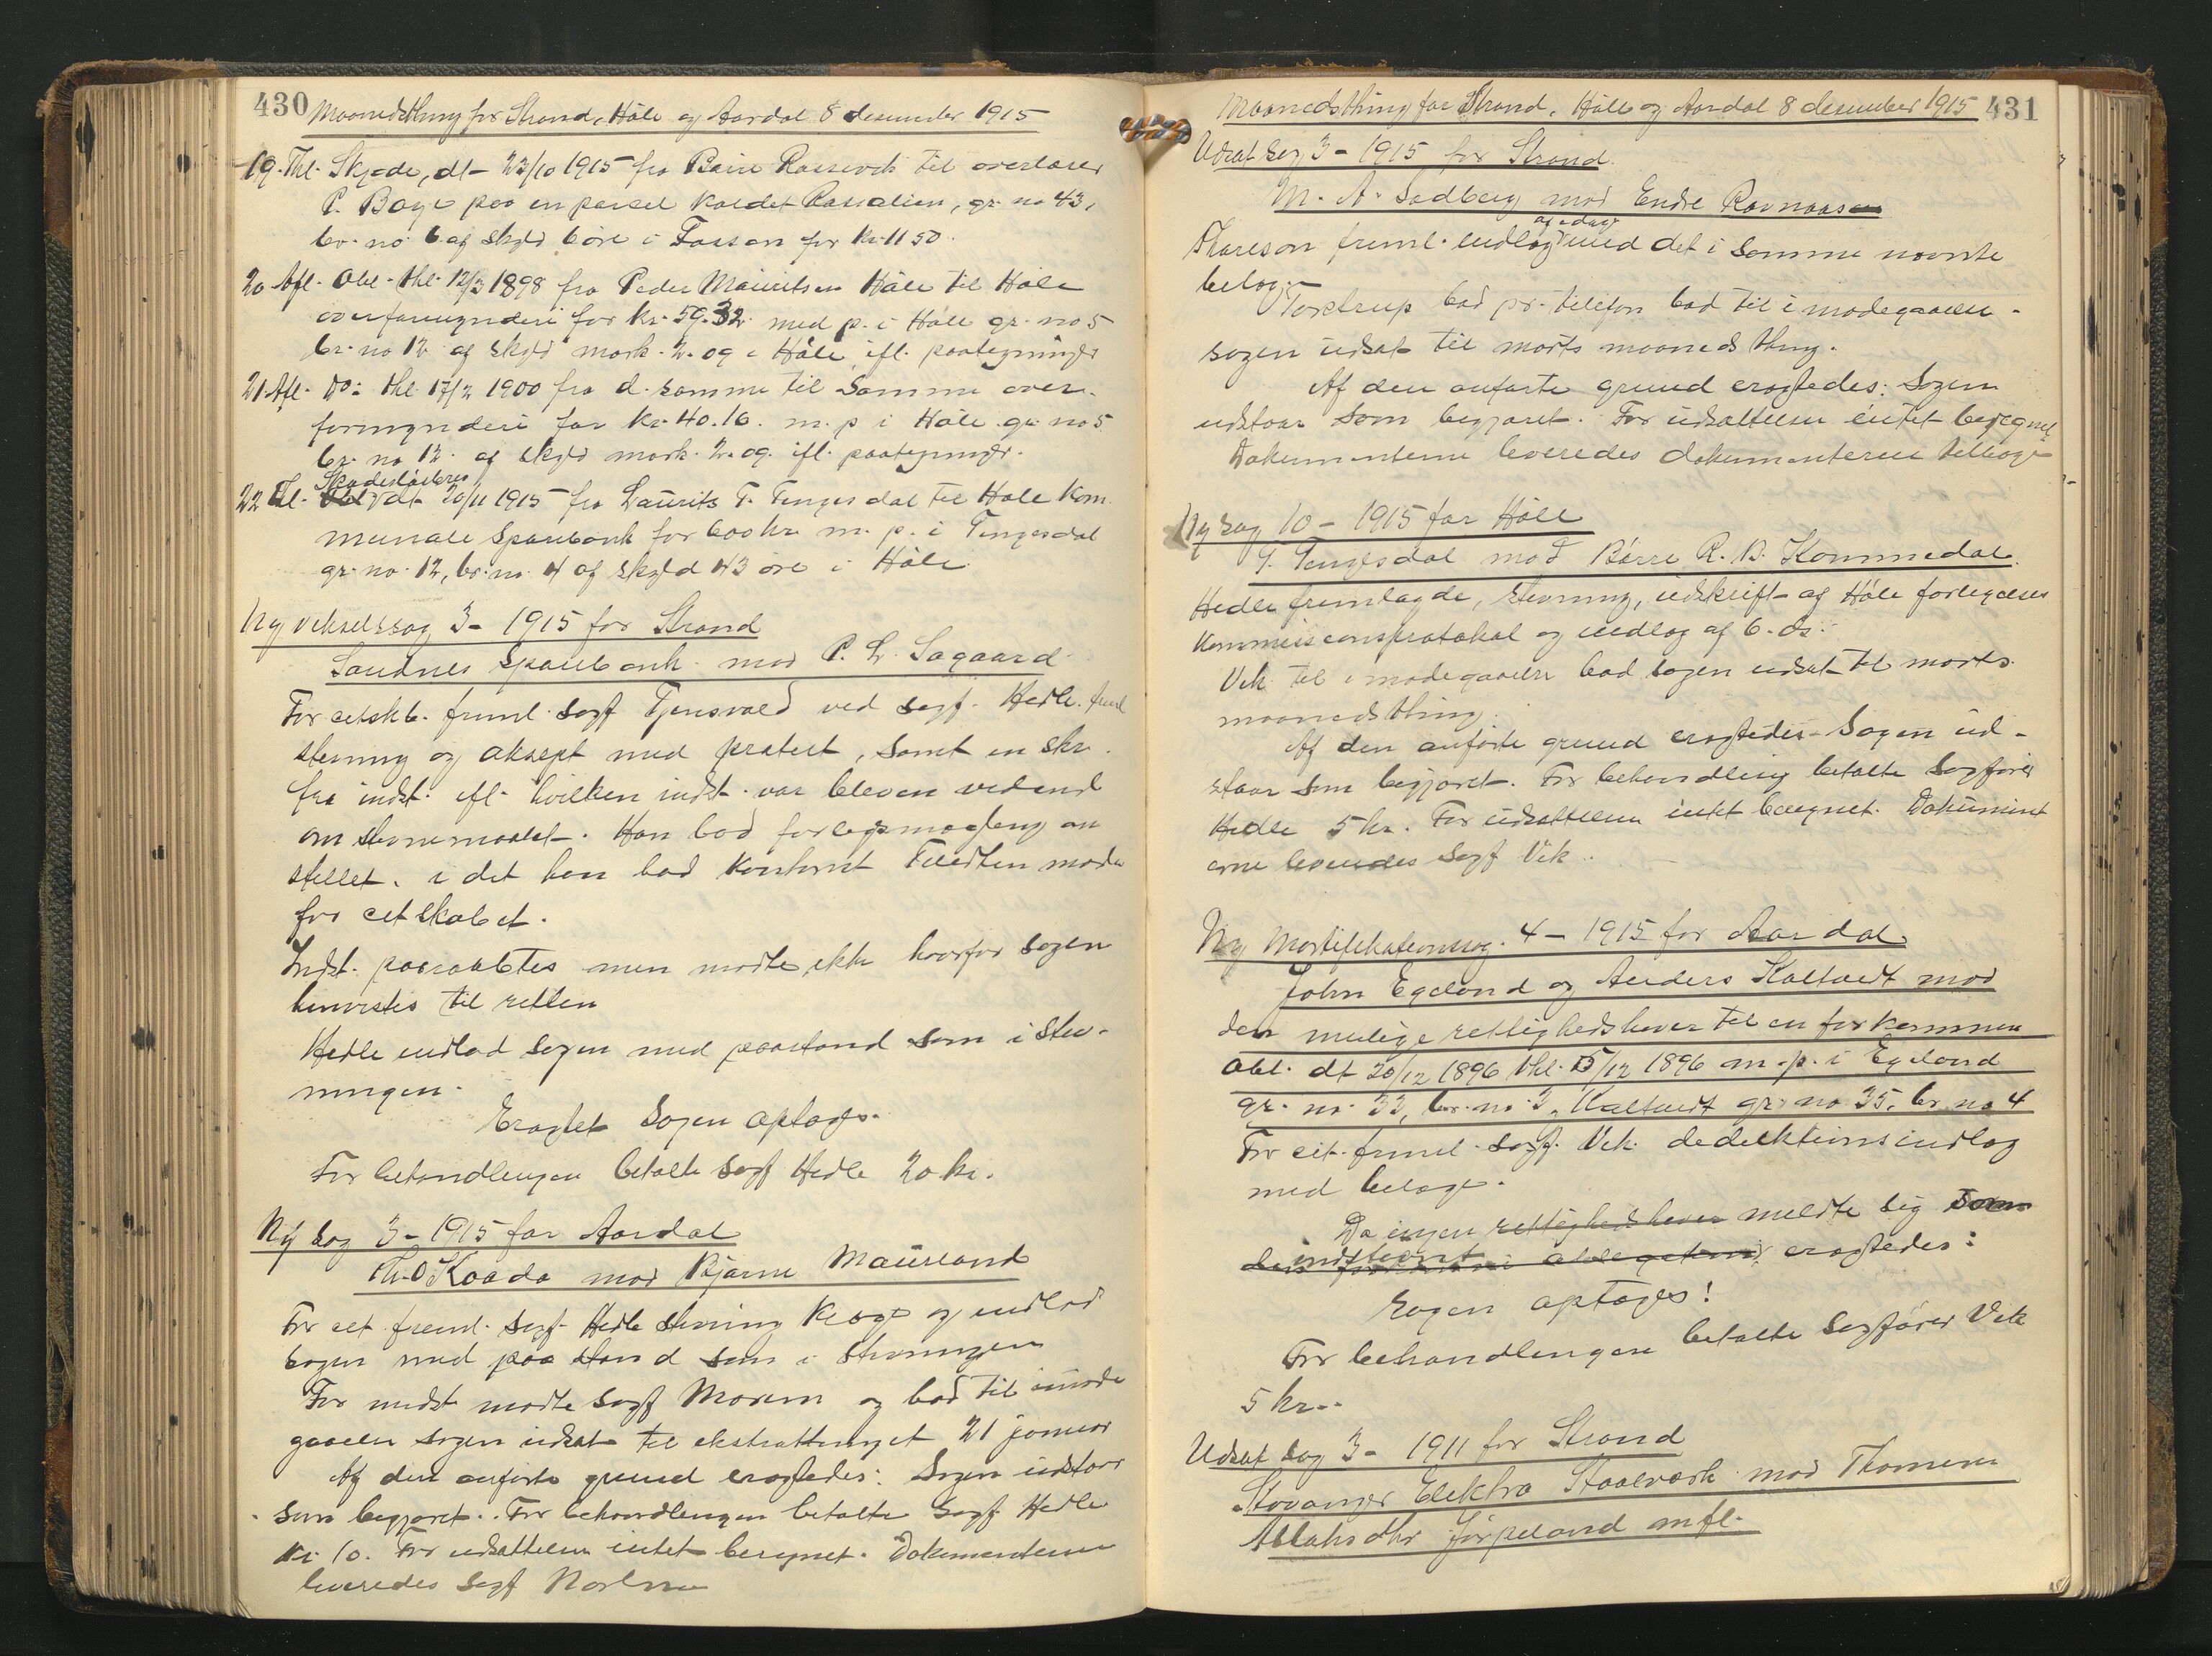 430 Maanedsthing for Strand, Høle og Aardal 8 desember 1915
19. Thl. Skjøde, dt 23/10 1915 fra Børre Rossevik til overlærer
P. Bøye paa en parcel kaldet Rossalien, gr. no 43,
br. no 6 af skyld 6 øre i Fossan for kr. 1150.
20 Afl. Obl. thl. 12/3 1898 fra Peder Mauritsen Høle til Høle
overformynderi for kr. 59.32 med p. i Høle gr. no 5
br. no 12 af skyld mark 2.09 i Høle ifl. paategninger
21. Afl. Do: thl. 17/2 1900 fra d. samme til samme over-
formynderi for kr. 40.16. m. p i Høle gr. no 5
br. no 12 af skyld mark 2.09 ifl. paategninger.
Skadesløsbrev
22 Thl. Obl dt 20/11 1915 fra Laurits T. Tengesdal til Høle Kom
munale Sparebank for 600 kr m. p. i Tengesdal
gr. no. 12, br. no. 4 af skyld 43 øre i Høle
Ny vekselssag 3 - 1915 for Strand
Sandnes Sparebank mod P. L. Sagaard
For citskb. freml. sagf Tjensvold ved sagf. Hedle freml
stevning og aksept med protest, samt en skr.
fra indst. ifl. hvilken indst. var bleven vidend
om stevnemaalet. Han bad forligsmægling an
stillet, i det han bad kontorist Tveidten møde
for citskabet.
Indst. paaraabtes men mødte ikke hvorfor sagen
henvistes til retten
Hedle indlod sagen med paastand som i stev-
ningen.
Eragtet Sagen optages.
For behandlingen betalte sagf Hedle 20 kr.
Ny sag 3 - 1915 for Aardal
Th. O Kaada mod Bjarne Maurland
For cit freml. sagf Hedle stevning klage og indlod
sagen med paastand som i stevningen
For indst mødte sagf Morem og bad til imøde
gaaelse sagen udsat til ekstrattinget 21 januar
Af den anførte grund eragtedes: Sagen udstaar
som begjæret. For behandlingen betalte Sagf Hedle
kr 10. For udsættelsen intet beregnet. Dokumenterne
leveredes sagf Morem
Maanedsthing for Strand, Høle og Aardal 8 desember 1915 431
Udsat sag 3 - 1915 for Strand.
M. A. Sadberg mod Endre Ravnaasen
af idag
Thoreson freml. indlæg med det i samme nævnte
belag.
Torstrup bad pr. telefon bad til imødegaaelse
sagen udsat til marts maanedsthing.
Af den anførte grund eragtedes: Sagen
udstaar som begjæret. For udsættelsen intet beregnet
Dokumenterne leveredes dokumenterne tilbage
Ny sag 10 - 1915 for Høle
T. Tengesdal mod Børre R. B. Kommedal.
Hedle fremlagde, stevning, udskrift af Høle forligelses
kommissionsprotokol og indlæg af 6. ds.
Vik til imødegaaelse bad sagen udsat til marts
maanedsthing.
Af den anførte grund eragtedes - Sagen ud-
staar som begjæret. For behandling betalte Sagfører
Hedle 5 kr. For udsættelsen intet beregnet. Dokument
erne leveredes Sagf Vik.
Ny Mortifikationssag. 4 - 1915 for Aardal.
John Egeland og Anders Kaltveit mod
den mulige rettighedshaver til en forkommen
Obl. dt 20/12 1896 thl. 15/12 1896 m. p. i Egeland
gr. no. 33, br. no 2, Kaltveit gr no 35, br. no 4
For cit. freml. sagf. Vik deduktionsindlæg
med belage.
Da ingen rettighedshaver meldte sig som
indstevnt
eragtedes:
sagen optages!
For behandlingen betalte Sagfører Vik
5 kr..
Udsat sag 3 - 1911 for Strand
Stavanger Elektro Staalverk mod Thomine
Ablahsdtr Jørpeland mfl.